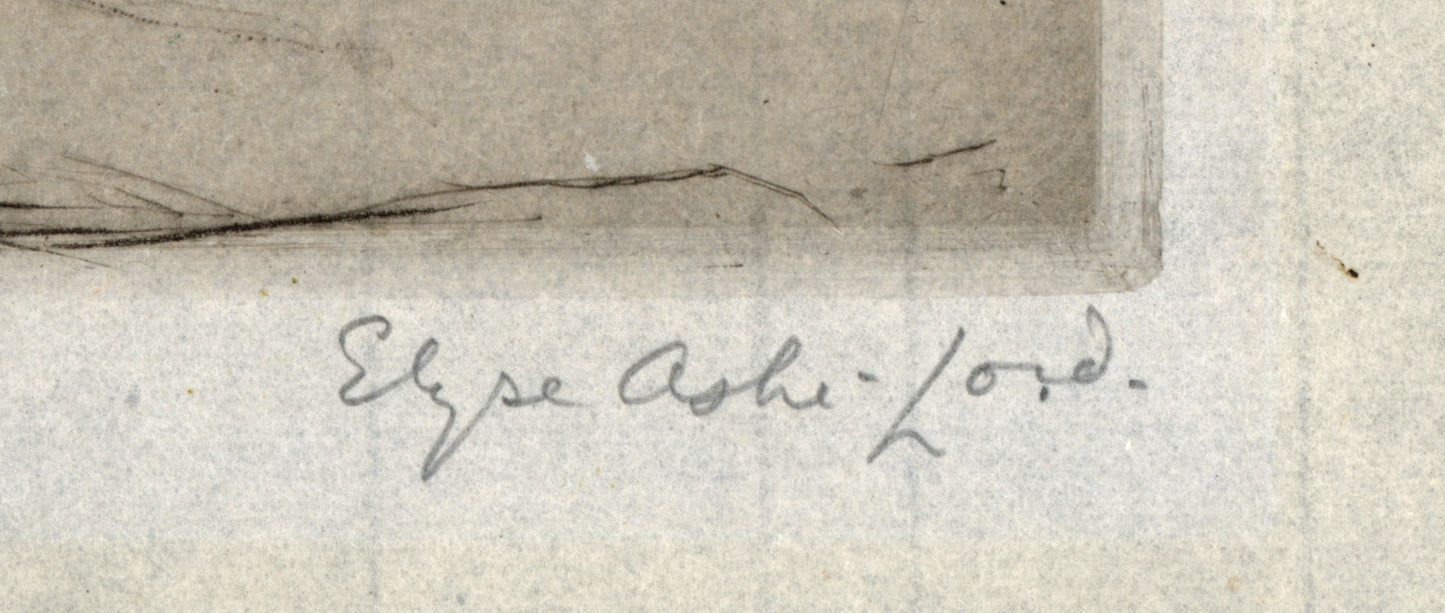 Elyse Ashe-Lord.